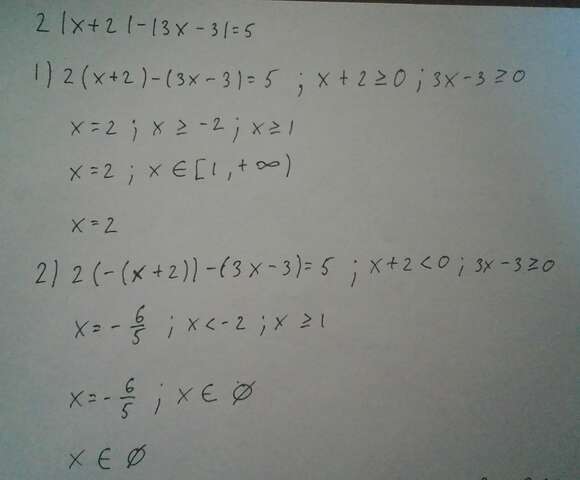 2|x+2|-|3x-3|=5
1) 2(x+2)-(3x-3)=5 ; x+2≥0 ; 3x-3≥0
x=2 ; x≥-2 ; x≥1
x=2 ; x∈[1,+∞)
x=2
2) 2(-(x+2))-(3x-3)=5 ; x+2<0 ; 3x-3≥0
x=-6/5 ; x<-2 ; x≥1
x=-6/5 ; x∈∅
x∈∅